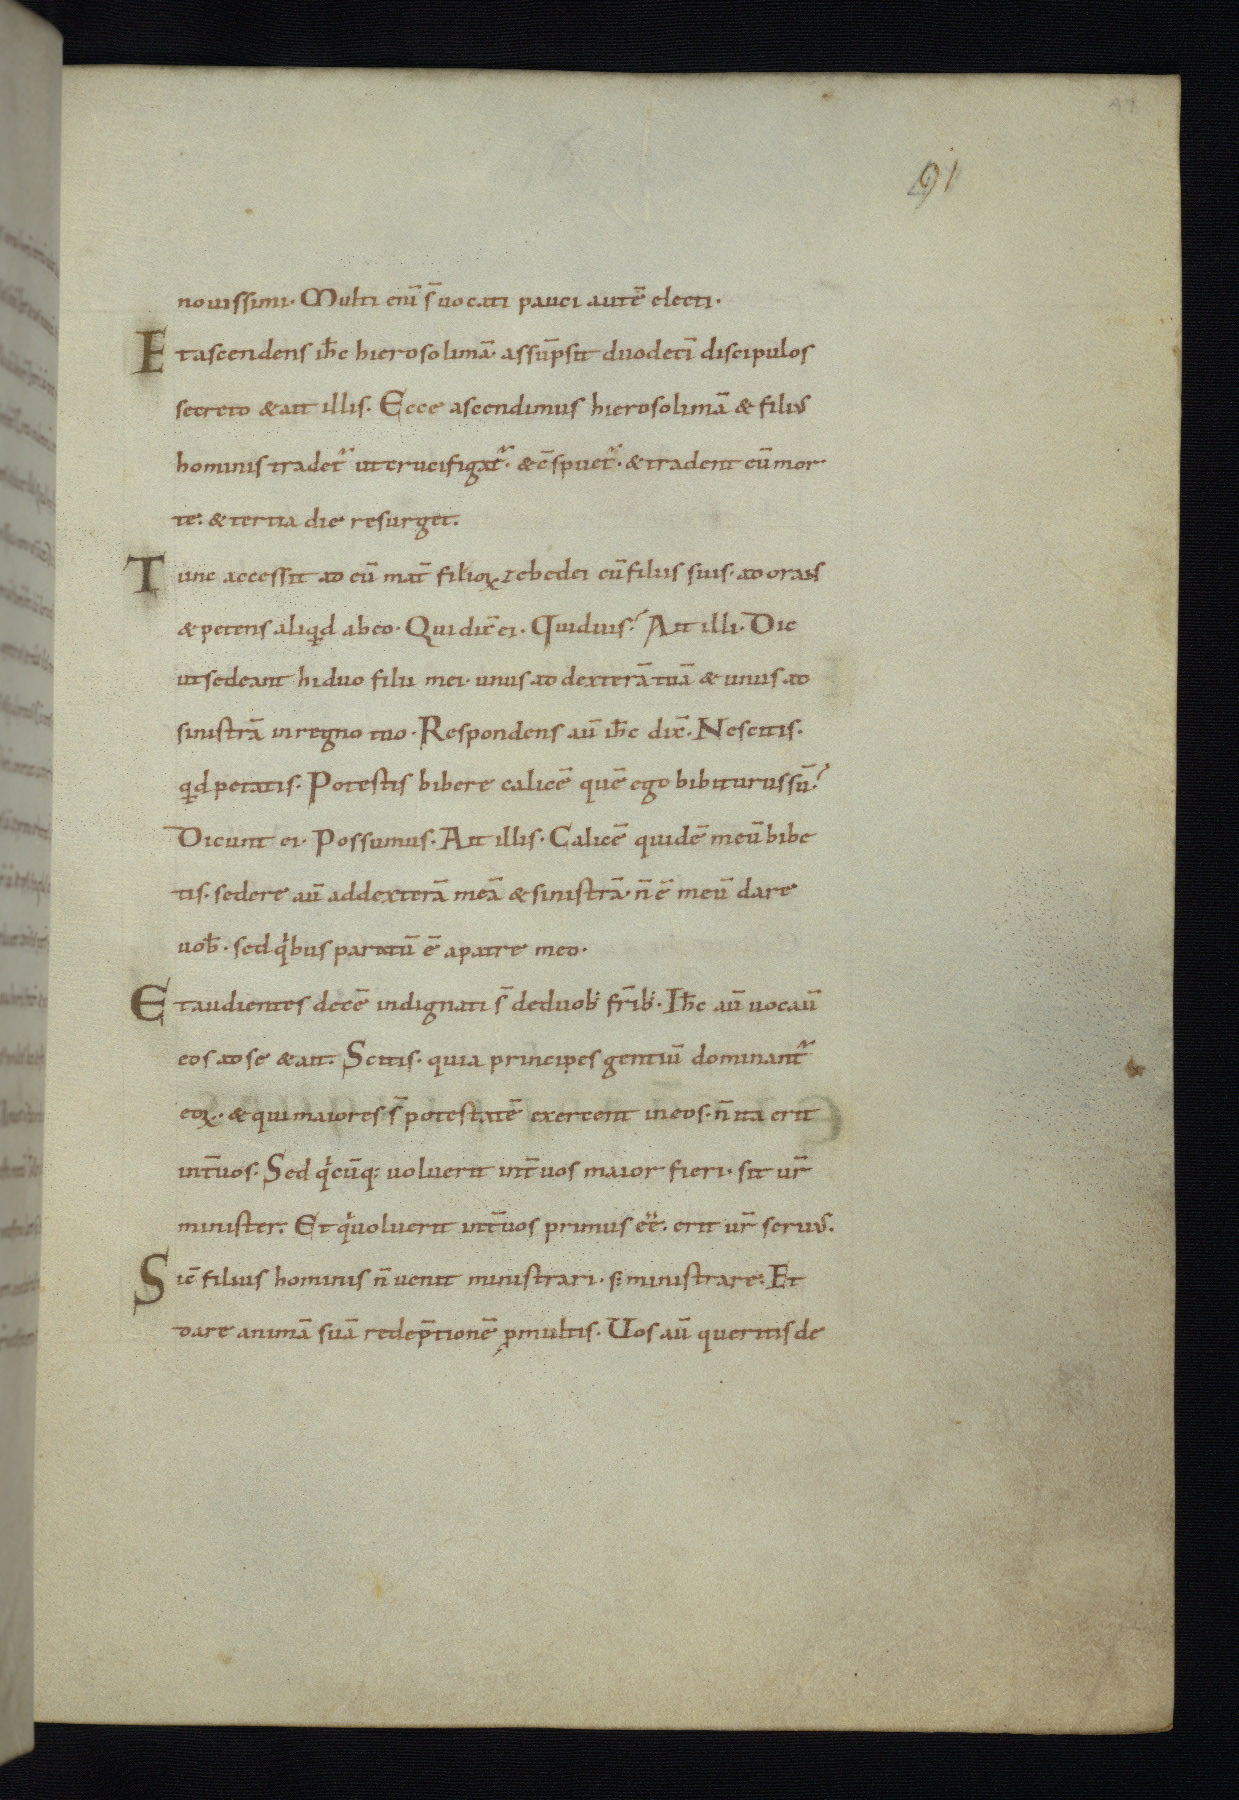 91
nouissimi. Multi enī s̄ uocati pauci autē electi.
Et ascendens ih̄c hierosolimā. assūpsit duodecī discipulos
secreto & ait illis. Ecce ascendimus hierosolimā & filius
hominis tradet᷑ ut crucifigat᷑. & c̄spuet᷑. & tradent eū mor
te. & tertia die resurget.
Tunc accessit ad eū mat̄ filioꝝ zebedei cū filiis suis. adorans
& petens aliqͥd ab eo. Qui dix̄ ei. Quid uis? Ait illi. Dic
ut sedeant hi duo filii mei. unus ad dexterā tuā & unus ad
sinistrā in regno tuo. Respondens aū ih̄c dix̄. Nescitis.
qͥd petatis. Potestis bibere calicē quē ego bibiturus sū?
Dicunt ei. Possumus. Ait illis. Calicē quidē meū bibe
tis. sedere aū ad dexterā meā & sinistrā. n̄ ē meū dare
uob̄. sed qͥbus paratū ē a patre meo.
Et audientes decē indignati s̄ de duob; fr̄ib;. Ih̄c aū uocaū
eos ad se & ait. Scitis. quia principes gentiū dominant᷑
eoꝝ. & qui maiores s̄ potestatē exercent in eos. n̄ ita erit
int̄ uos. Sed qͥcūq; uoluerit int̄ uos maior fieri. sit ur̄
minister. Et qͥ uoluerit int̄ uos primus eē. erit ur̄ seruus.
Sic̄ filius hominis n̄ uenit ministrari. s; ministrare. Et
dare animā suā redēptionē ꝓ multis. Uos aū queritis de